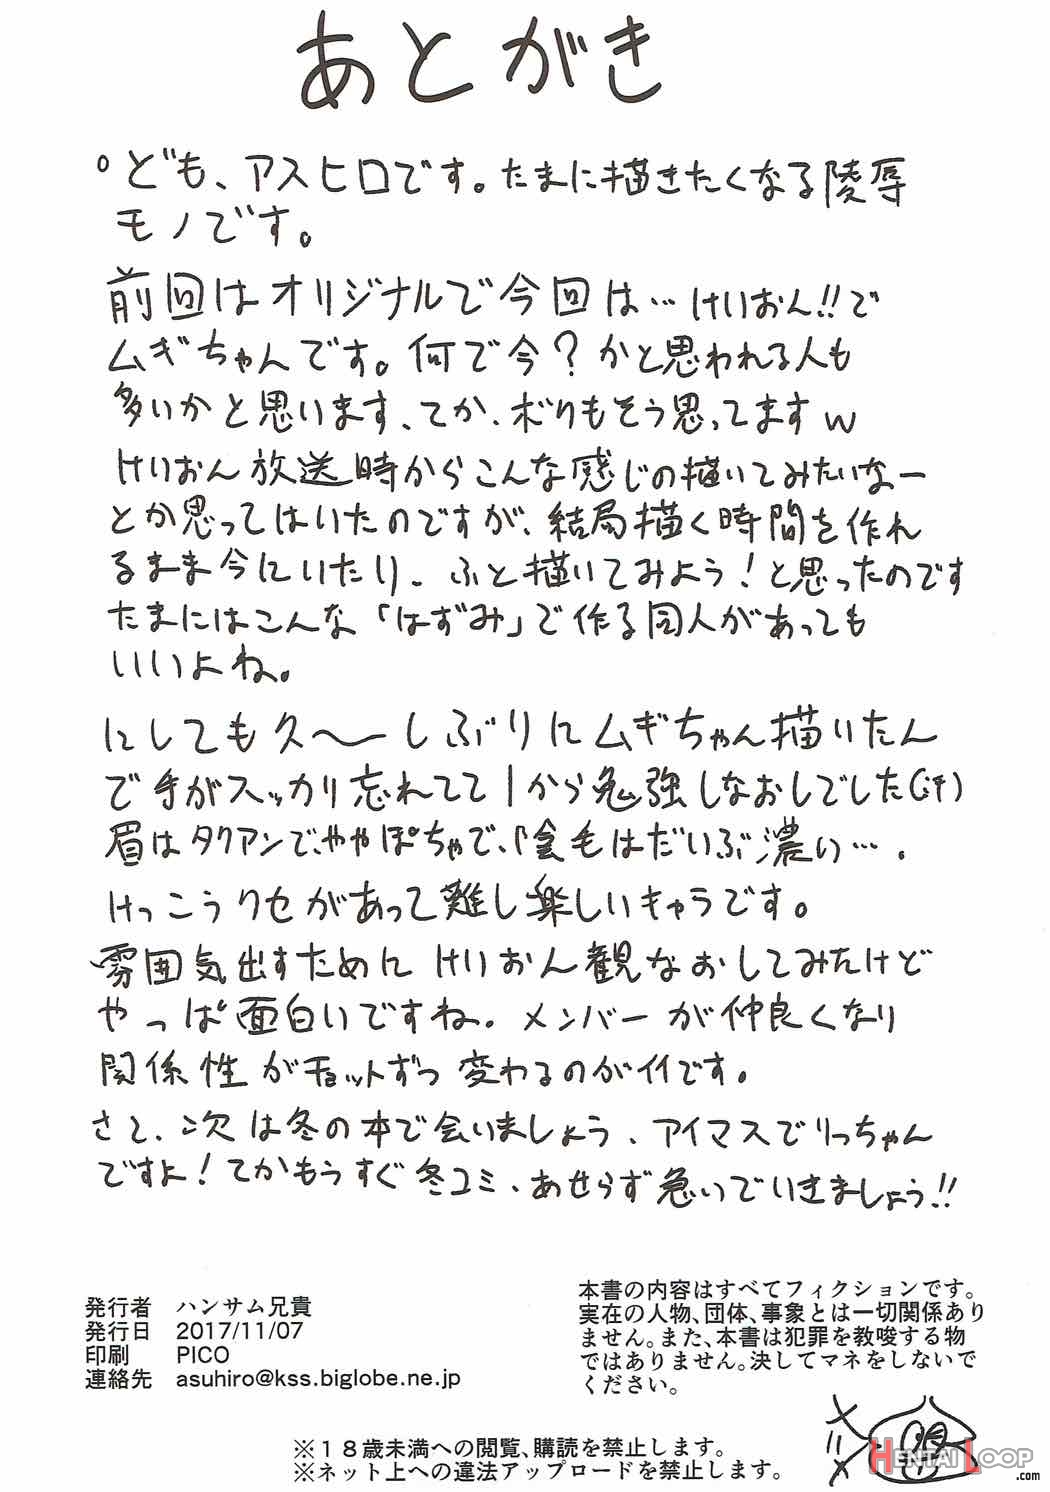 あとがき
° ども、アスヒロです。たまに描きたくなる陵辱
モノです。
前回はオリジナルで今回は…けいおん!!で
ムギちゃんです。何で今？かと思われる人も
多いかと思います、てか、ボクもそう思ってますw
けいおん放送時からこんな感じの描いてみたいなー
とか思ってはいたのですが、結局描く時間を作れ
るまま今にいたり、ふと描いてみよう！と思ったのです
たまにはこんな「はずみ」で作る同人があっても
いいよね。
にしても久〜しぶりにムギちゃん描いたん
で手がスッカリ忘れてて1から勉強しなおしでした(汗)
眉はタクアンで、ややぽちゃで、陰毛はだいぶ濃い…。
けっこうクセがあって難し楽しいキャラです。
雰囲気出すためにけいおん観なおしてみたけど
やっぱ面白いですね。メンバーが仲良くなり
関係性がチョットずつ変わるのがイイです。
さて、次は冬の本で会いましょう、アイマスでりっちゃん
ですよ！てかもうすぐ冬コミ、あせらず急いでいきましょう!!
発行者 ハンサム兄貴
発行日 2017/11/07
印刷 PICO
連絡先 asuhiro@kss.biglobe.ne.jp
本書の内容はすべてフィクションです。
実在の人物、団体、事象とは一切関係あり
ません。また、本書は犯罪を教唆する物
ではありません。決してマネをしないで
ください。
※１８歳未満への閲覧、購読を禁止します。
※ネット上への違法アップロードを禁止します。
HENTAI LOOP
.com